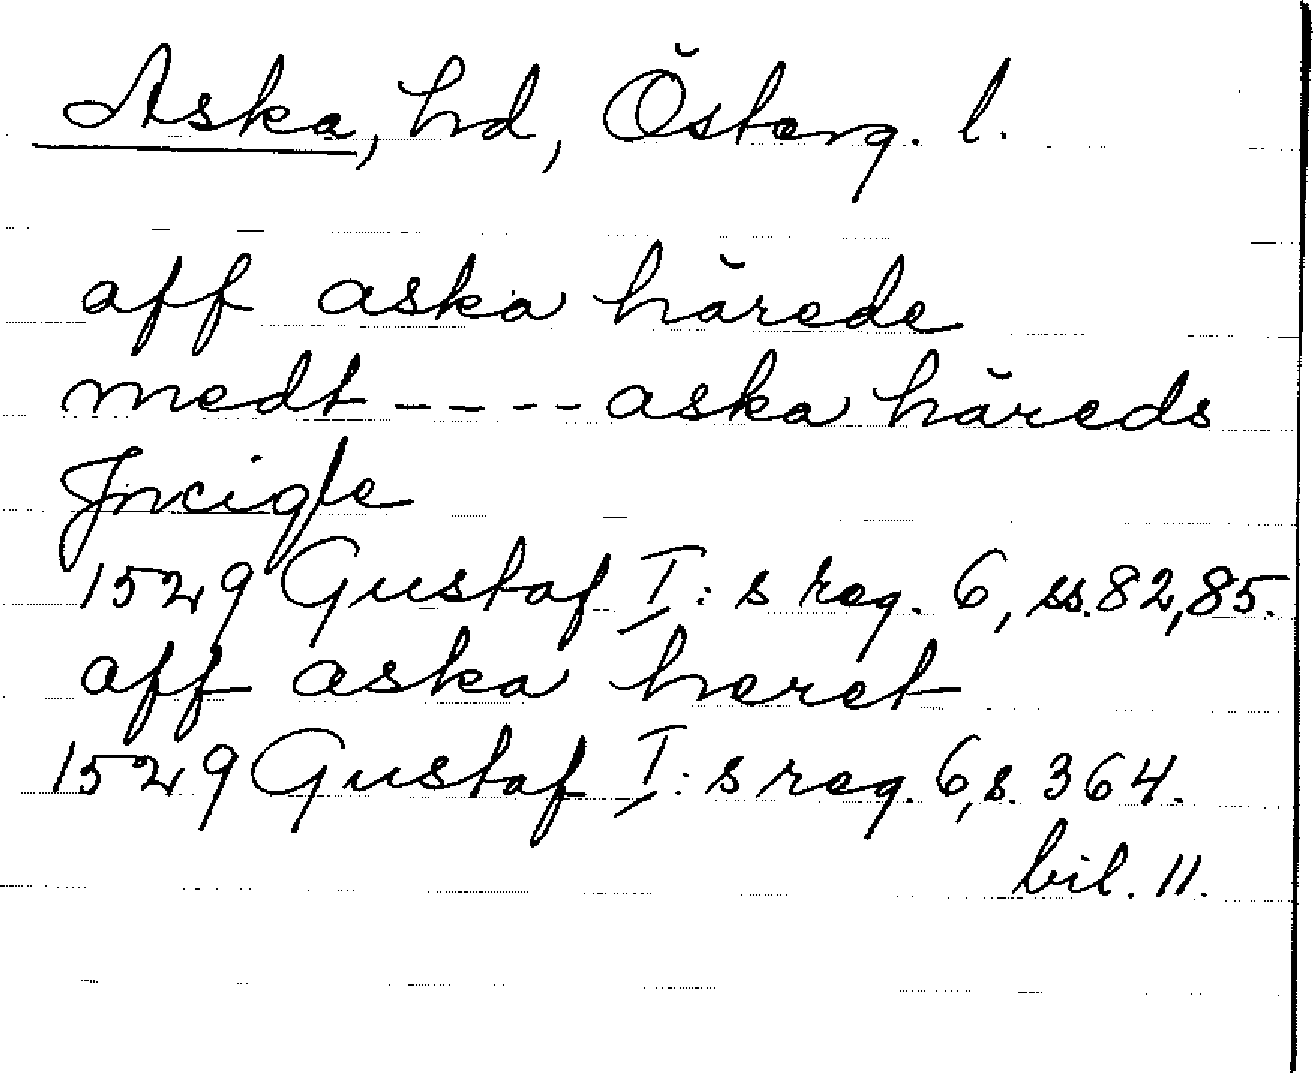 Aska, hd, Österg. l.
aff aska härede
medt - - - - aska häreds
Jncigle
1529 Gustaf I: s reg. 6, ss. 82, 85.
aff aska heret
1529 Gustaf I: s reg. 6, s. 364.
bil. 11.